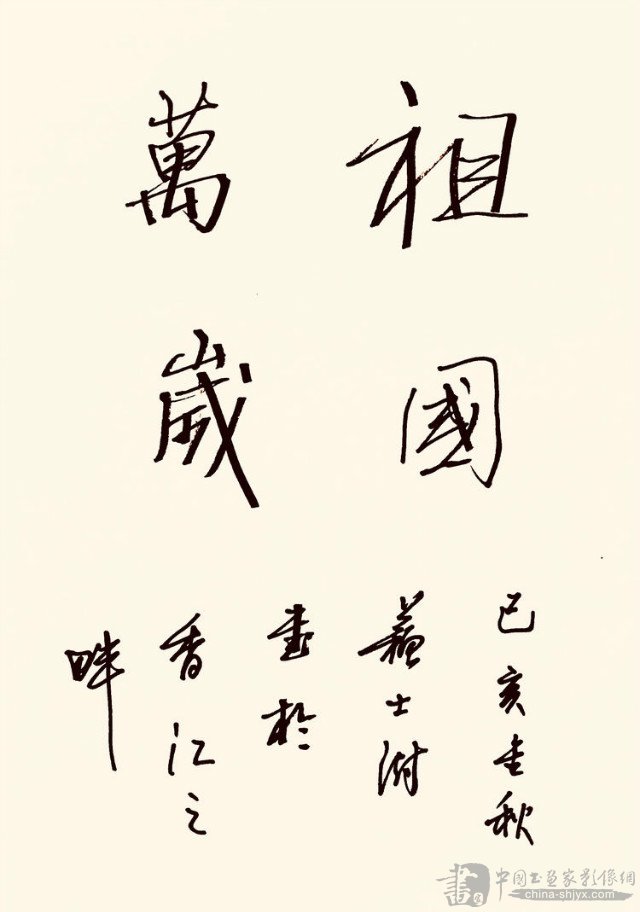 祖國
萬歲
己亥金秋
蘇士澍
書於
香江之
畔
書 中国书画家影像網
china-shjyx.com